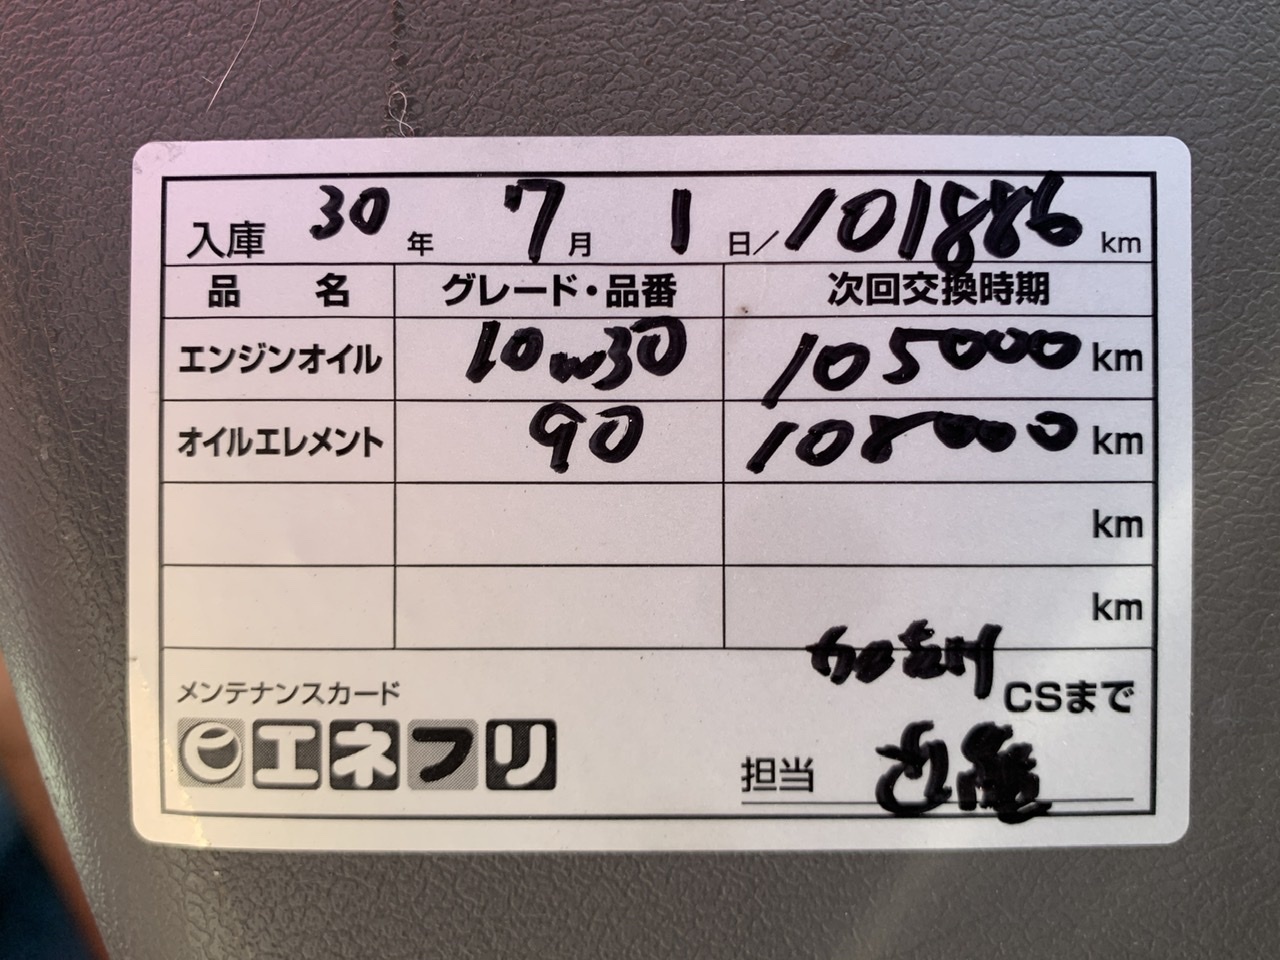 入庫 30年 7月 1日/101886km
品名 グレード・品番 次回交換時期
エンジンオイル 10w30 105000km
オイルエレメント 90 108000km
km
km
CSまで
メンテナンスカード
エネフリ
担当